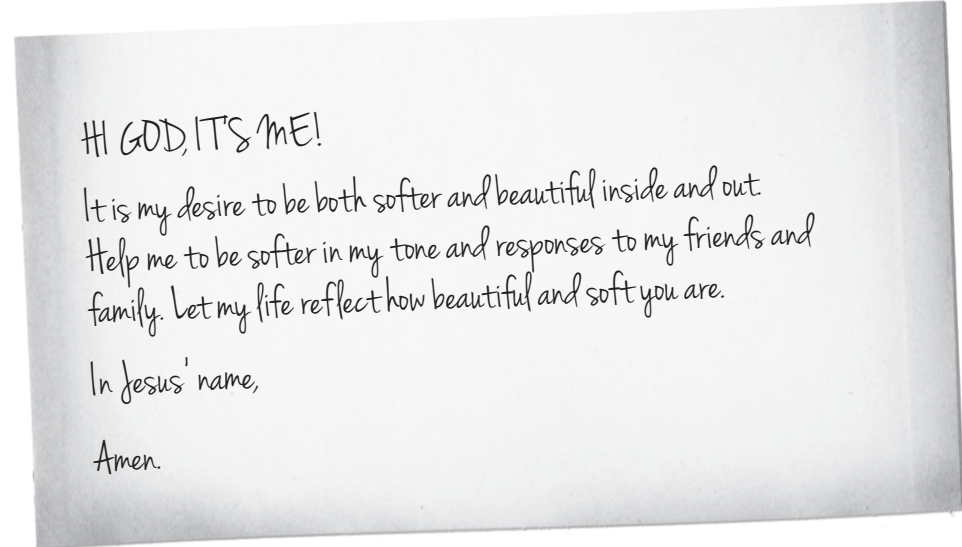 HI GOD, IT'S ME!
It is my desire to be both softer and beautiful inside and out.
Help me to be softer in my tone and responses to my friends and
family. Let my life reflect how beautiful and soft you are.
In Jesus' name,
Amen.